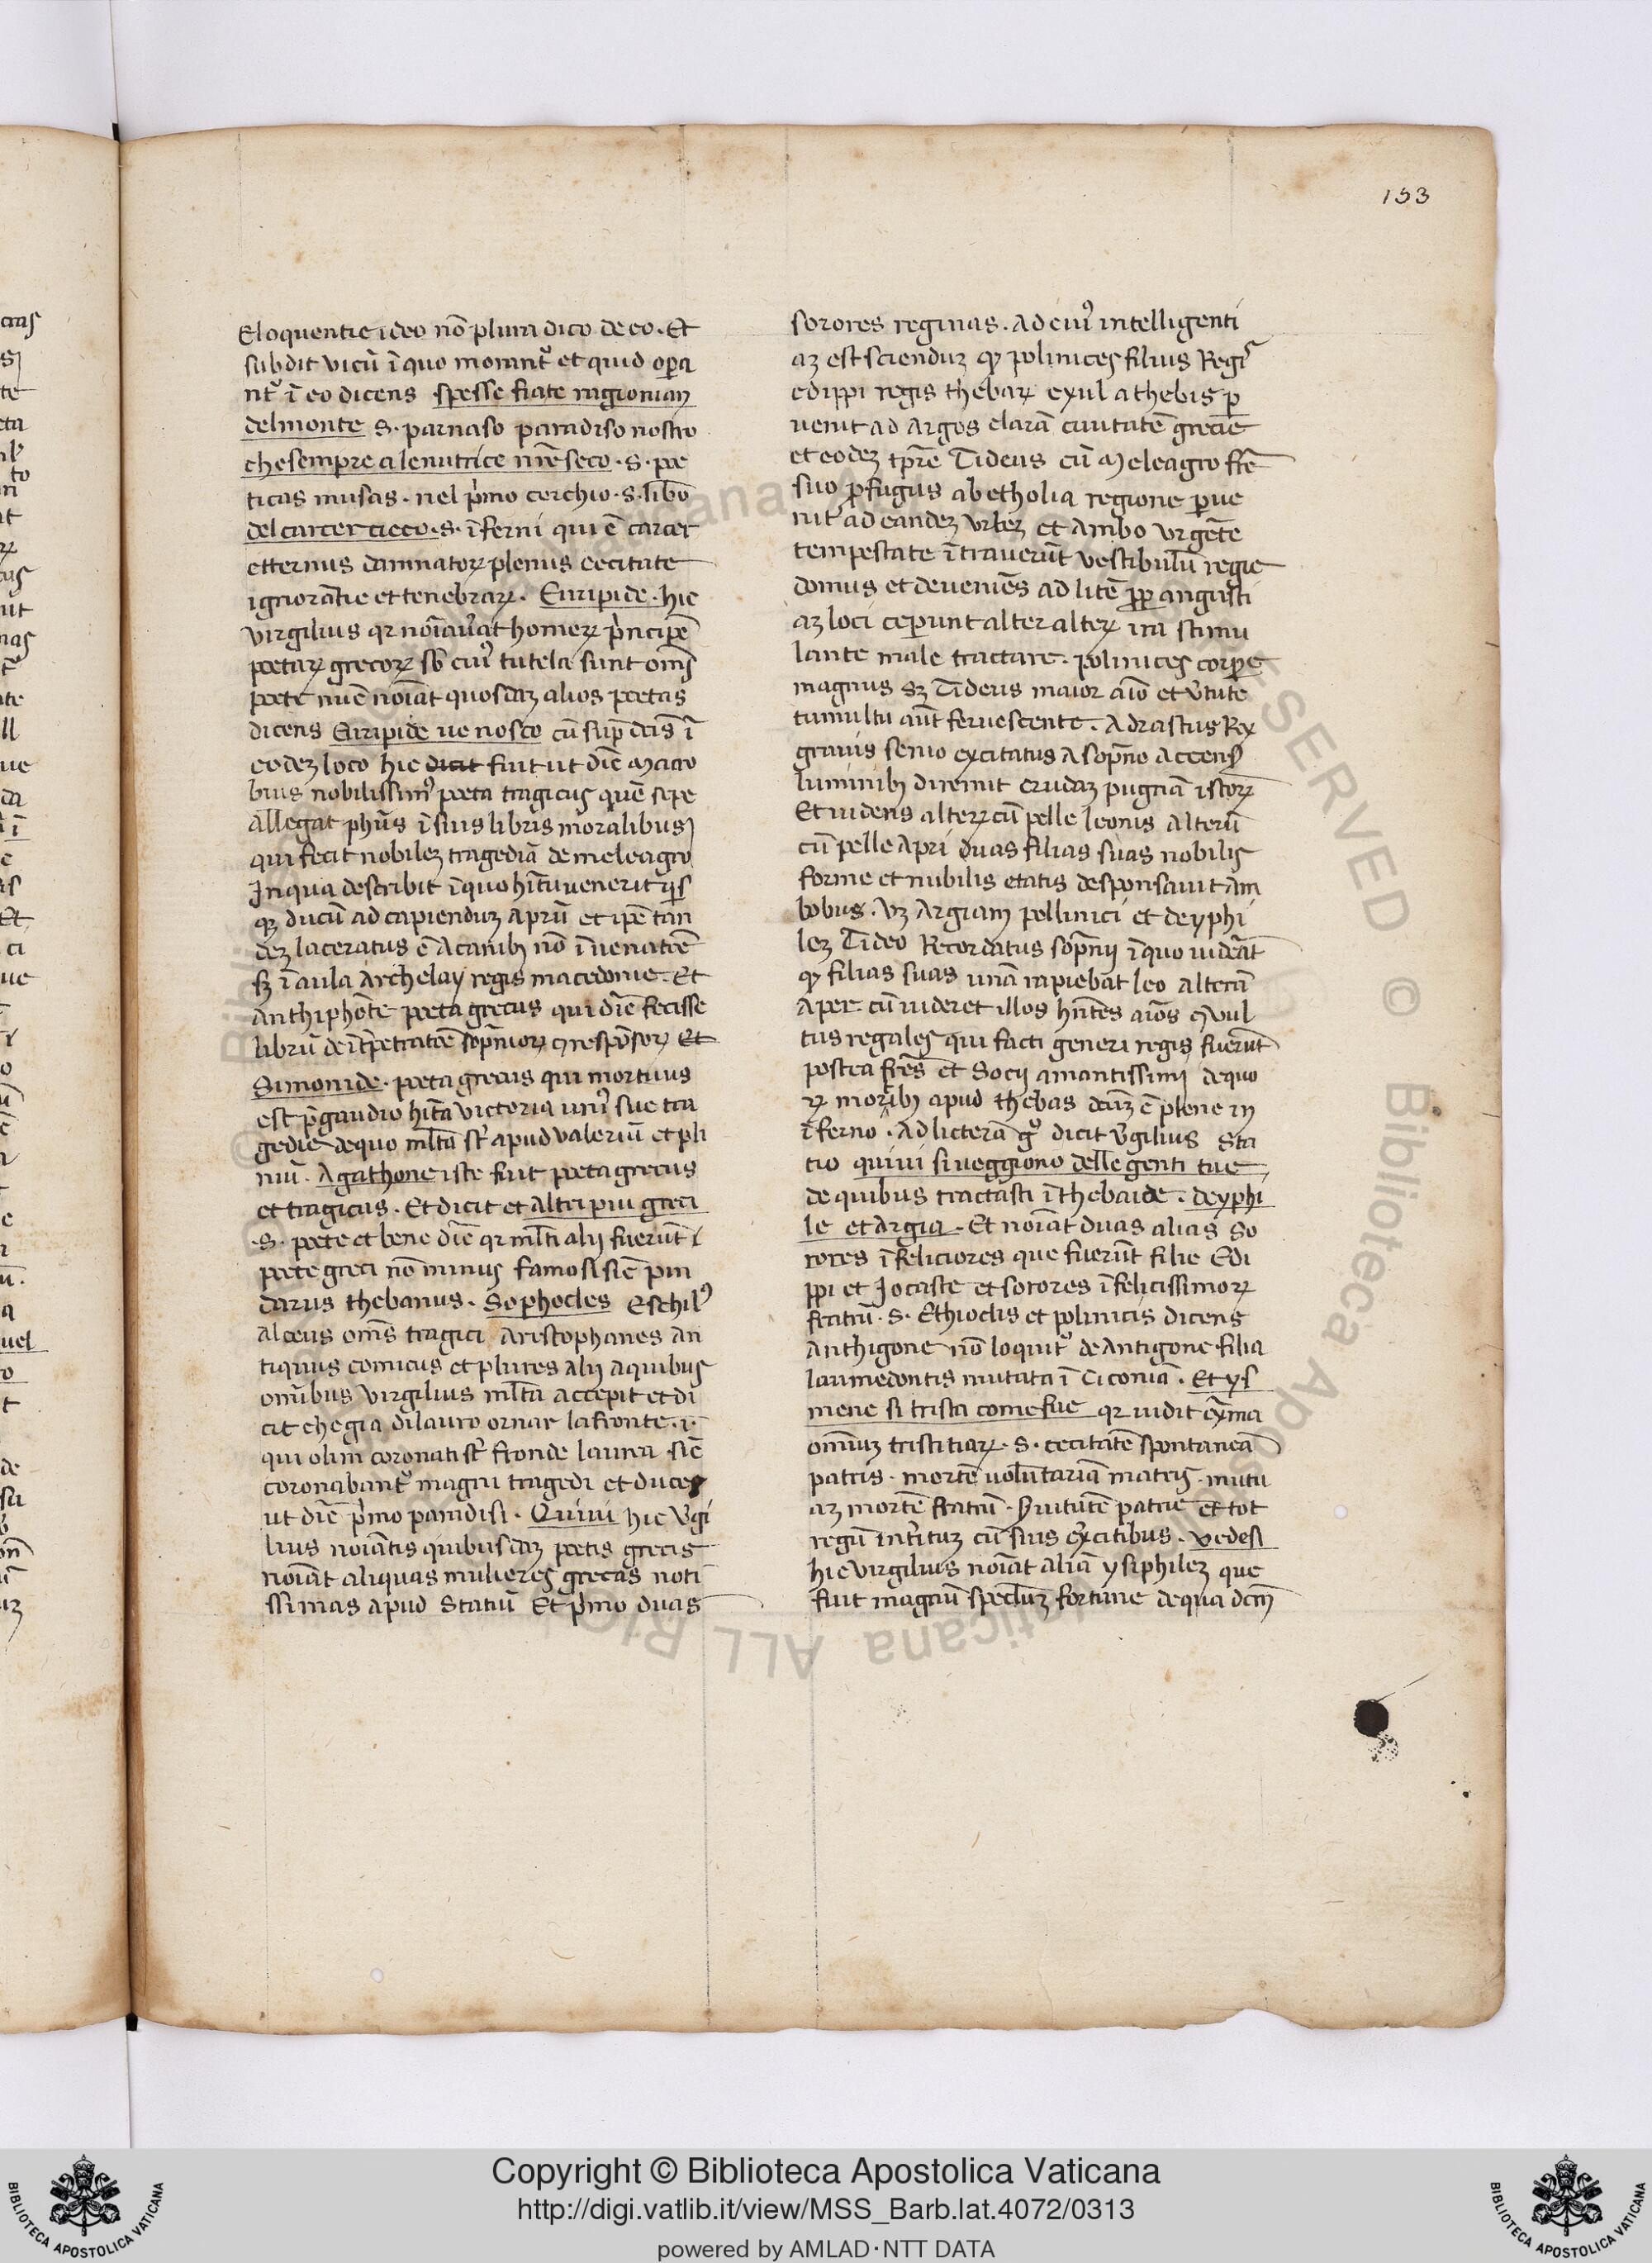 153
Eloquentie ideo nō plura dico de eo. Et
subdit vicū ī quo morant᷑ et quid oꝑa
nt᷑ ī eo dicens spesse fiate ragioniam
del monte .S. parnaso paradiso nostro
che sempre a le nutrice nr̄e seco .S. poe
ticas musas. nel pͥmo cerchio .S. libo
del carcer cieco .S. īferni qui ē carcer
etternus damnatoꝝ plenus cecitate
ignorātie et tenebraꝝ. Euripide. hic
virgilius qr noīauāt homeꝝ pͥncipē
poetaꝝ grecoꝝ sb cuiꝰ tutela sunt om̄s
poete nūc noīat quosdaz alios poetas
dicens Euripide ue nosco cū sup̄dcīs ī
eodez loco hic dicit fuit ut dīc Macro
bius nobilissimꝰ poeta tragicus quē sepe
allegat phūs ī suis libris moralibus
qui fecit nobilez tragediā de meleagro
In qua describit ī quo hītu venerit qͥs
qꝫ ducū ad capienduz aprū et ip̄e tan
dez laceratus ē a canibꝫ nō ī uenatōe
sꝫ ī aula Archelay regis macedonie. Et
Anthiphōte poeta grecus qui dīc fecisse
librū de īt̄petratōe sop̄nioꝝ ⁊ respōsoꝝ Et
Simonide. poeta grecus qui mortuus
est p̄ gaudio hīta victoria uniꝰ sue tra
gedie de quo ml̄ta st᷑ apud valeriū et pli
niū. Agathone iste fuit poeta grecus
et tragicus. Et dicit et altri piu greci
.S. poete et bene dīc qr ml̄ti alij fuerūt
poete greci nō minus famosi sic̄ pin
darus thebanus. Sophocles Eschilꝰ
Alceus om̄s tragici Aristophanes an
tiquus comicus et plures alij a quibus
om̄ibus virgilius ml̄ta accepit et di
cit che gia di lauro ornar la fronte .i.
qui olim coronati st᷑ fronde laurea sic̄
coronabant᷑ magni tragedi et duces
ut dīc pͥmo paradisi. Quiui hic Vͥgi
lius noīatis quibusdaz poetis grecis
noīat aliquas mulieres grecas noti
ssimas apud Statiū Et pͥmo duas
sorores reginas. Ad cuiꝰ intelligenti
aꝫ est sciendūꝫ qͥ polinices filius Regꝭ
edippi regis thebaꝝ exul a thebis ꝑ
uenit ad Argos clarā ciuitatē grecie
et eodeꝫ tp̄re Tideus cū Meleagro fr̄e
suo ꝓfugus ab etholia regione ꝑue
nit ad eandeꝫ urbeꝫ et ambo urgēte
tempestate ītrauerūt vestibulū regie
domus et deueniēs ad litē ꝓp̄ angusti
aꝫ loci ceperunt alter alteꝝ ira stimu
lante male tractare. polinices corpore
magnus sꝫ Tideus maior aīo et vͥtute
tumultu aūt feruescente. Adrastus Rex
grauis senio excitatus a sop̄no accensꝭ
luminibꝫ diremit crudaꝫ pugnā istoꝝ
Et uidens alteꝝ cū pelle leonis alterū
cū pelle Apri duas filias suas nobilis
forme et nubilis etatis desponsauit am
bobus. vꝫ Argiam pollinici et deyphi
leꝫ Tideo Recordatus sop̄nij ī quo uidēat
qͥ filias suas unā rapiebāt leo alterā
aper cū uideret illos hn̄tes aīos ⁊ uul
tus regales qui facti generi regis fuerūt
postea fr̄es et Socij amantissimi de quo
ꝝ moribꝫ apud thebas dcūꝫ ē plene in
īferno. Ad licterā gͦ dicit Vͥgilius Sta
tio quiui si ueggiono delle genti tue,
de quibus tractasti ī thebaide. deyphi
le et Argia. Et noīat duas alias so
rores ī feliciores que fuerūt filie Edi
ppi et Jocaste et sorores ī felicissimoꝝ
fratrū .S. Ethioclis et polinicis dicens
Anthigone nō loquit᷑ de Antigone filia
laumedontis mutata ī Ciconiā. Et ys
mene si trista come fue qr uidit ex̄ma
omniuꝫ tristitiaꝝ .S. cecitatē spontaneā
patris. mortē uolūtariā matris. mutu
aꝫ mortē fratrū. ſuitutē patrie et tot
regū int̄ituꝫ cū suis ex̄citibus. vedesi
hic virgilius noīat aliā ysiphileꝫ que
fuit magnū speclūꝫ fortune de qua dcm̄
Copyright © Biblioteca Apostolica Vaticana
http://digi.vatlib.it/view/MSS_Barb.lat.4072/0313
powered by AMLAD·NTT DATA
BIBLIOTECA APOSTOLICA VATICANA
BIBLIOTECA APOSTOLICA VATICANA